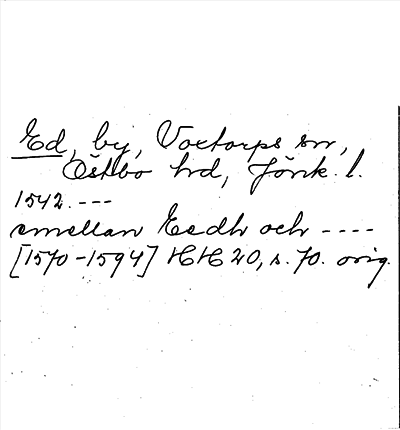 Ed, by, Voxtorps sn,
Östbo hrd, Jönk. l.
1542. ---
emellan Eedh och ----
[1570-1594] HH 20, s. 70. orig.